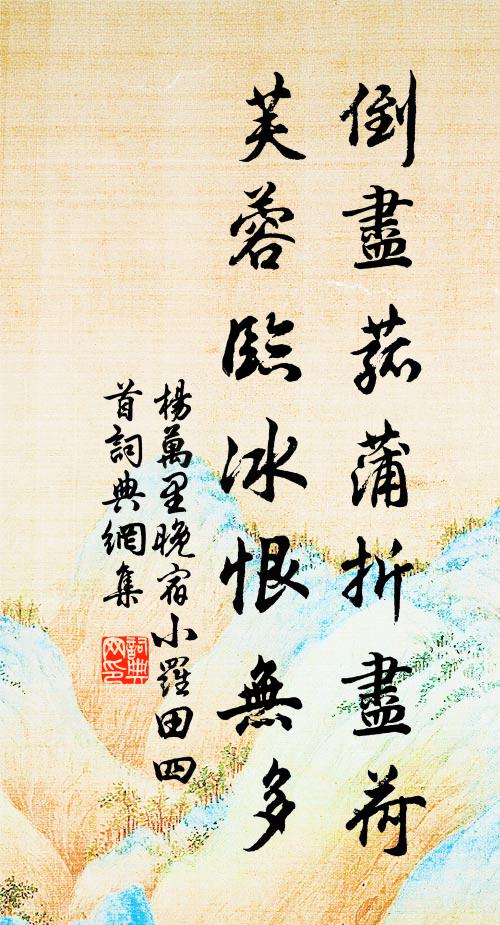 倒盡菰蒲折盡荷
芙蓉臨冰恨無多
楊萬里晚宿小羅田四
首詞典網集
詞典
网印